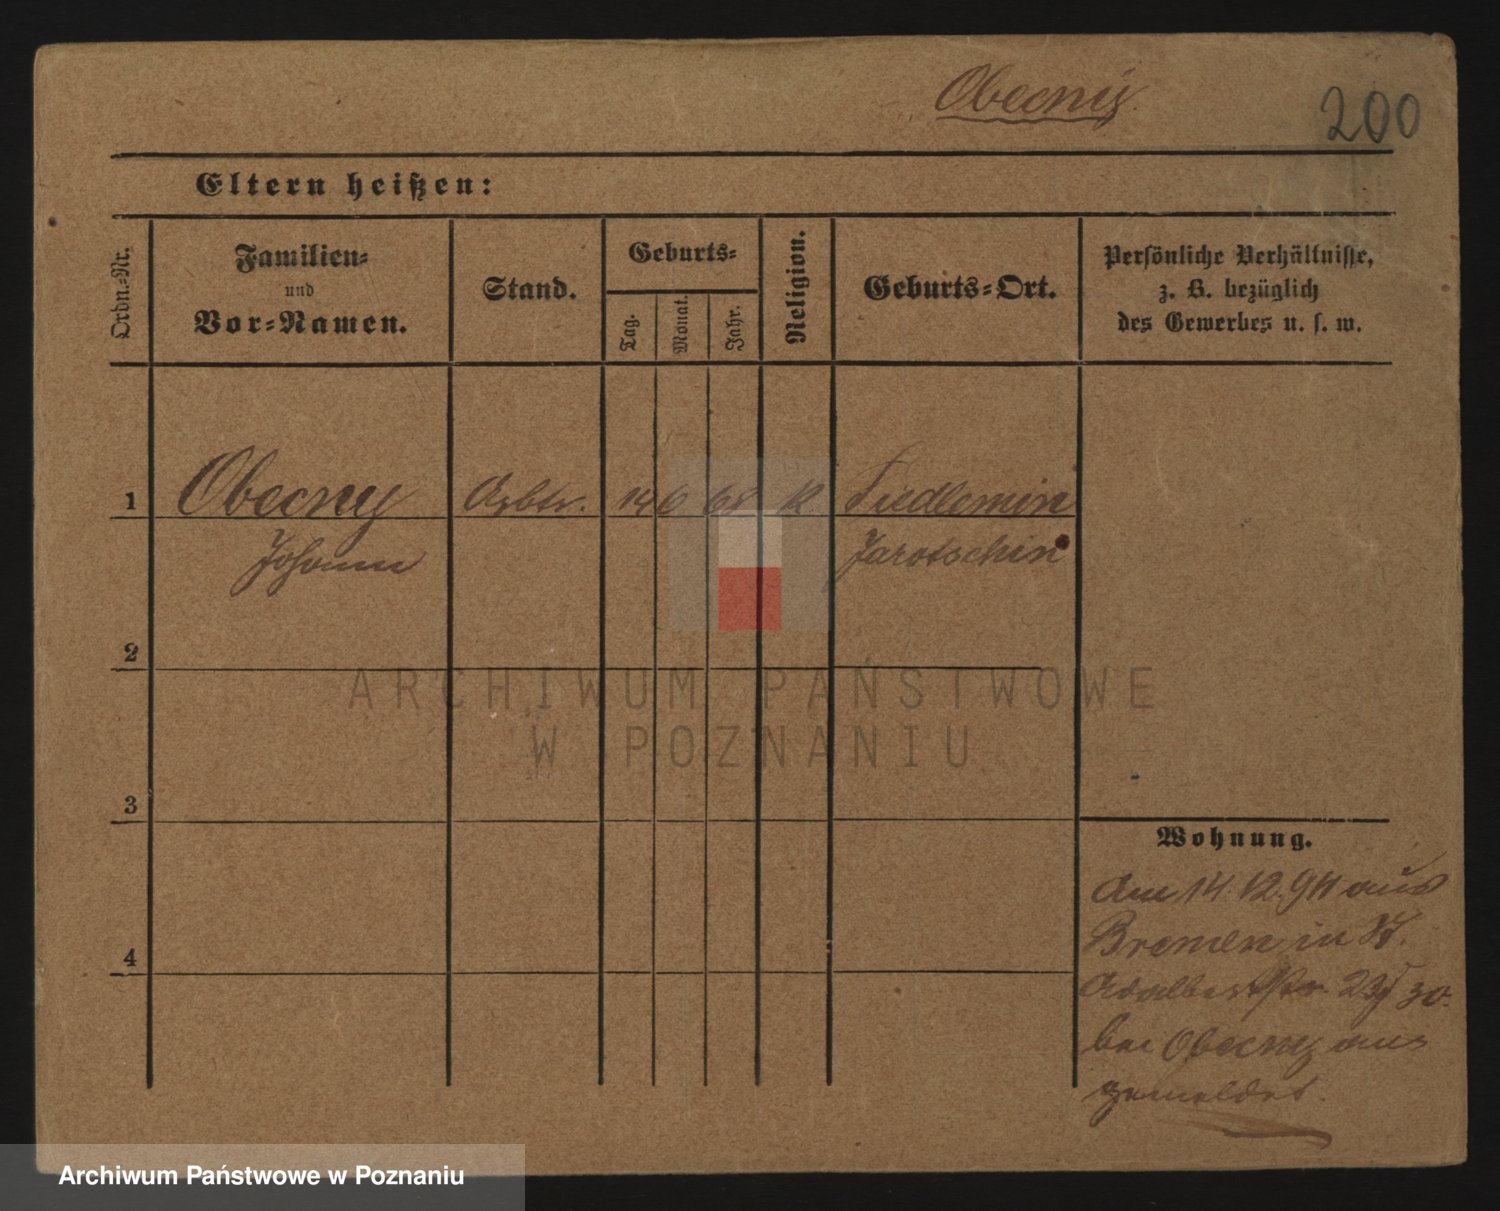 Obecny.
200
Eltern heißen:
Ordn.-Nr.
Familien-
und
Vor-Namen.
Stand.
Geburts-
Tag.
Monat.
Jahr.
Religion.
Geburts-Ort.
Persönliche Verhältnisse,
z. B. bezüglich
des Gewerbes u. s. w.
1 Obecny Arbtr. 14 6 68 K Siedlemin
Johann Jarotschin
2
3
4
Wohnung.
Am 14. 12. 94 aus
Bremen in St.
Adalbertstr. 30.
bei Obecny an
gemeldet.
ARCHIWUM PAŃSTWOWE
W POZNANIU
Archiwum Państwowe w Poznaniu